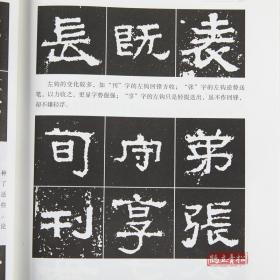 長 既 表
左钩的变化较多，如“刊”字的左钩回锋方收；“张”字的左钩逆势送
笔，以力收之，更显字势倔强；“享”字的左钩只是轻提送出，虽不作回锋，
却不嫌轻浮。
旬 守 弟
刊 享 張
种
了
这
些